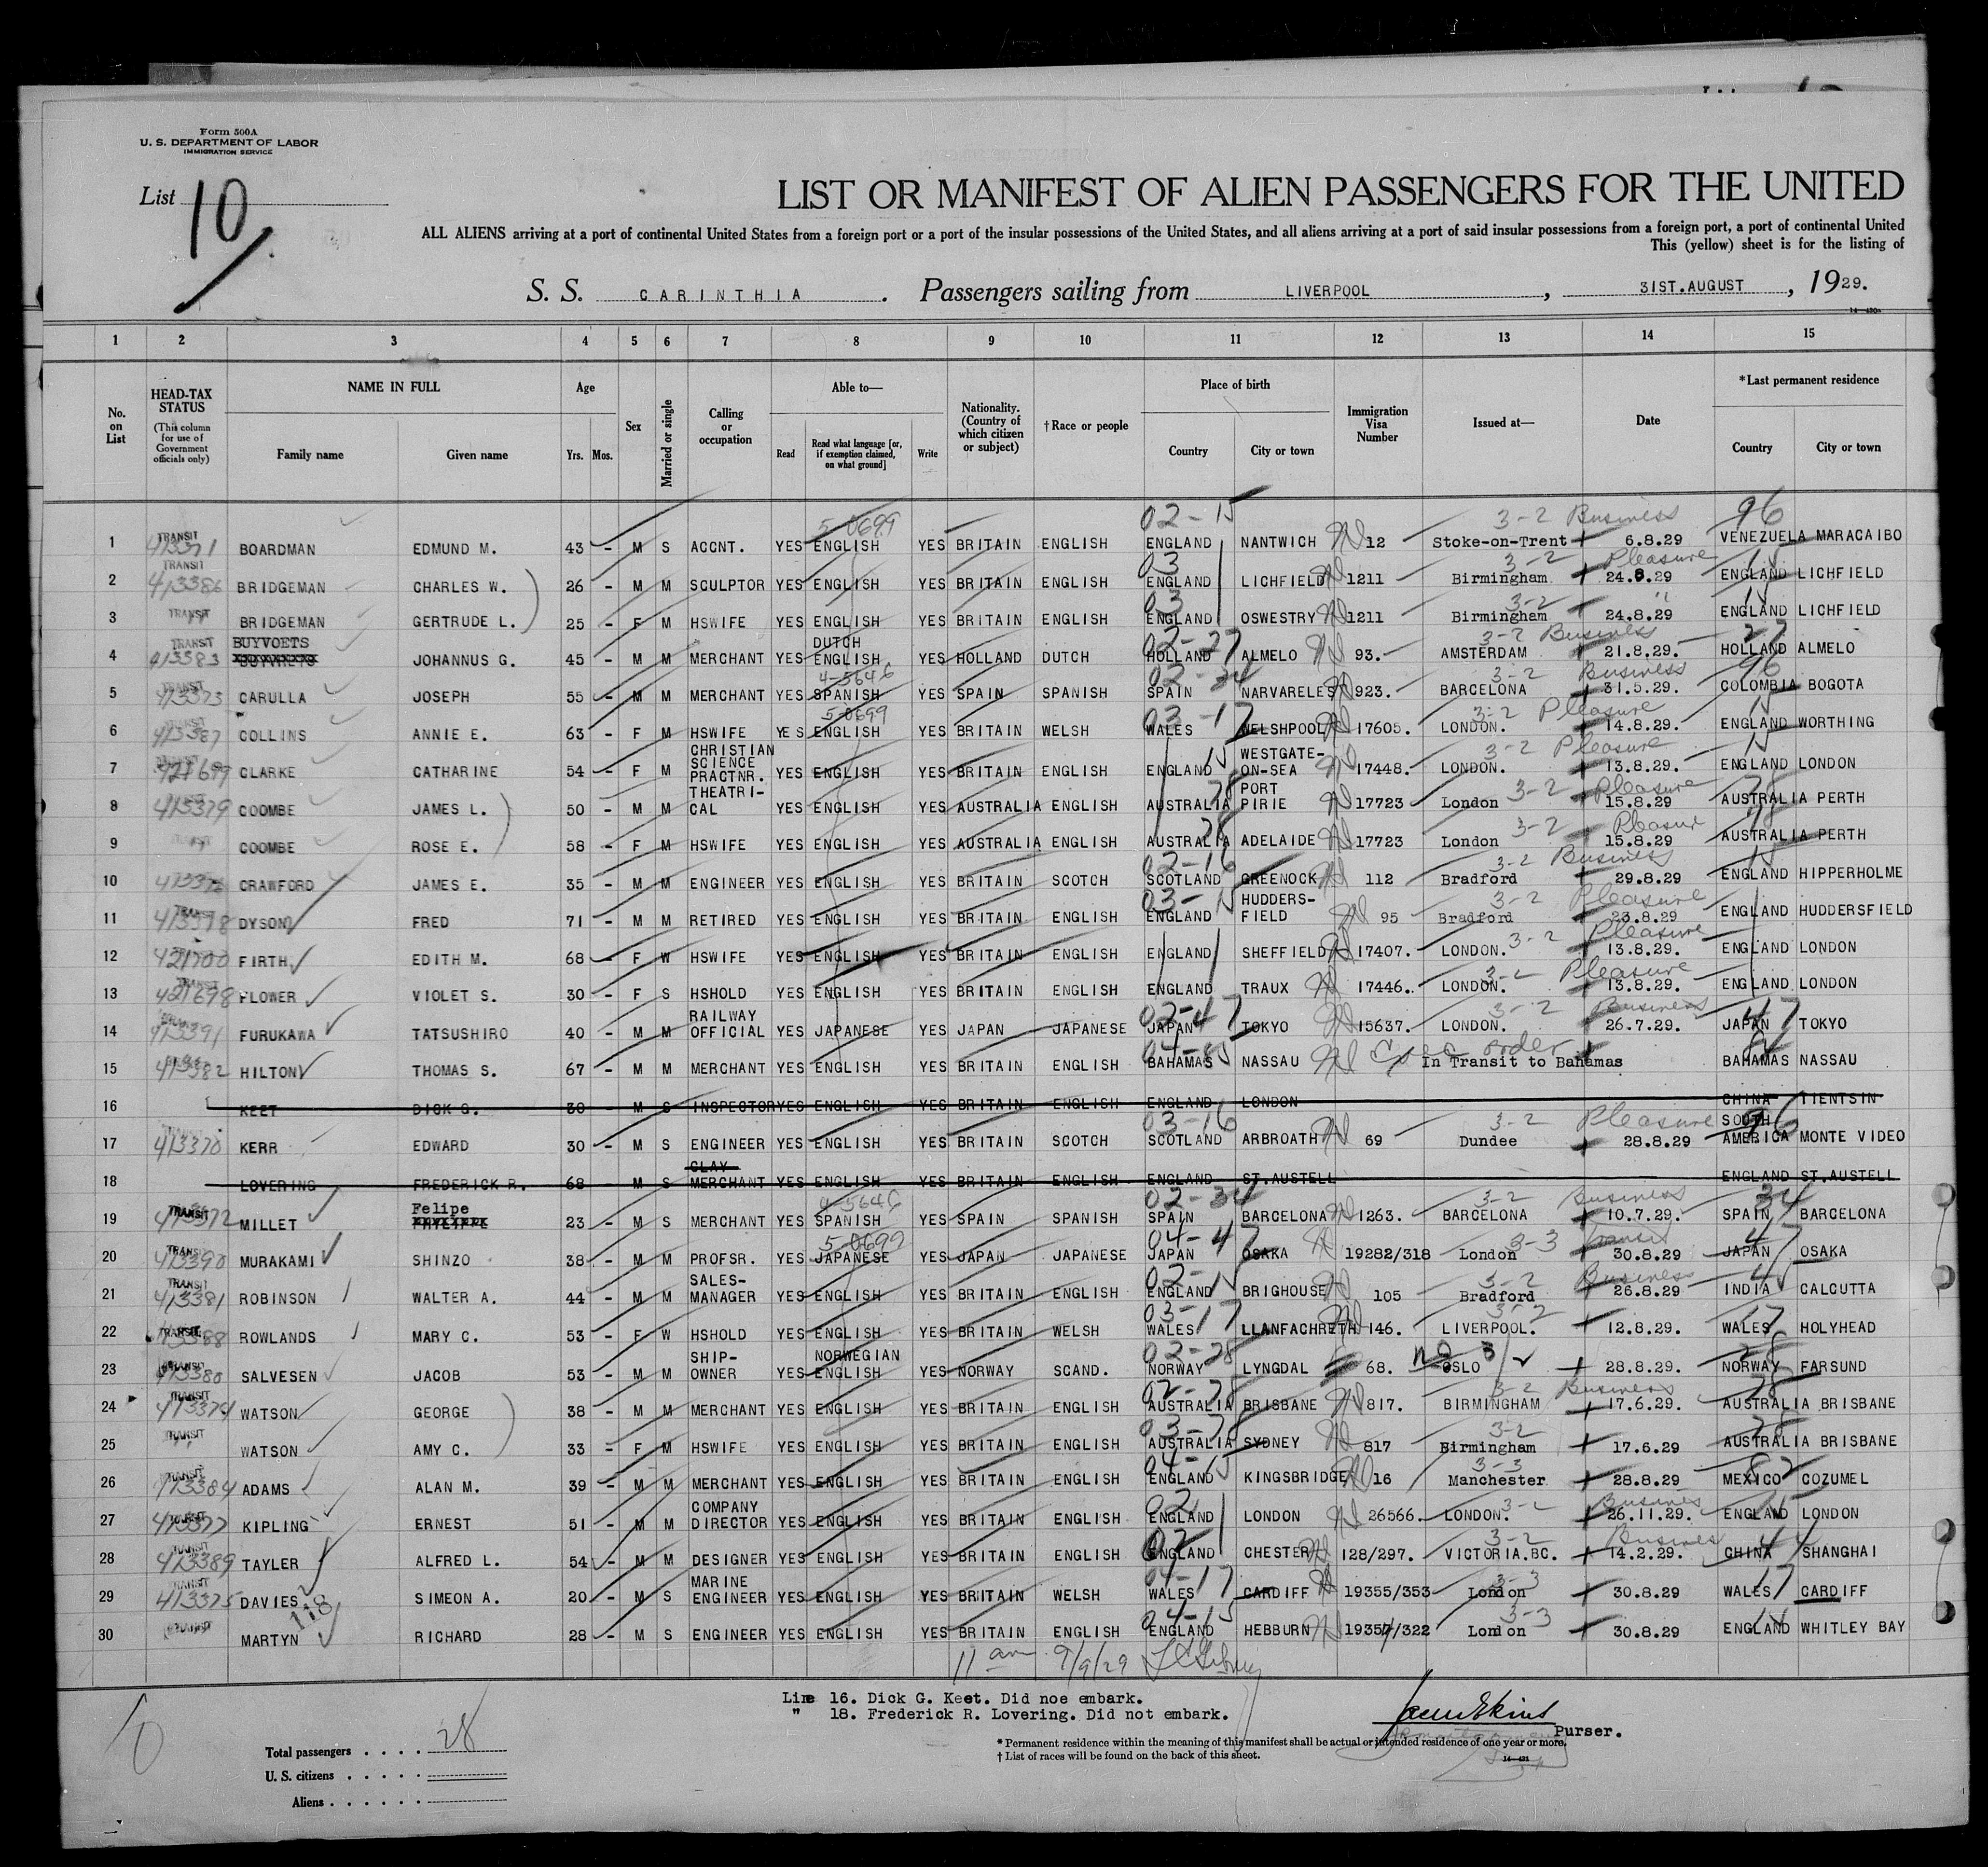 Form 500A
U. S. DEPARTMENT OF LABOR
IMMIGRATION SERVICE
List 10
LIST OR MANIFEST OF ALIEN PASSENGERS FOR THE UNITED
ALL ALIENS arriving at a port of continental United States from a foreign port or a port of the insular possessions of the United States, and all aliens arriving at a port of said insular possessions from a foreign port, a port of continental United
This (yellow) sheet is for the listing of
S. S. CARINTHIA . Passengers sailing from LIVERPOOL , 31ST.AUGUST , 1929.
1 2 3 4 5 6 7 8 9 10 11 12 13 14 15
No. on List
HEAD-TAX STATUS (This column for use of Government officials only)
NAME IN FULL Family name Given name
Age Yrs. Mos.
Sex
Married or single
Calling or occupation
Able to— Read Read what language [or, if exemption claimed, on what ground] Write
Nationality. (Country of which citizen or subject)
†Race or people
Place of birth Country City or town
Immigration Visa Number
Issued at—
Date
*Last permanent residence Country City or town
1 TRANSIT 413371 BOARDMAN EDMUND M. 43 - M S ACCNT. YES ENGLISH YES BRITAIN ENGLISH ENGLAND NANTWICH 12 Stoke-on-Trent 3-2 Business 6.8.29 VENEZUELA MARACAIBO
2 TRANSIT 413386 BRIDGEMAN CHARLES W. 26 - M M SCULPTOR YES ENGLISH YES BRITAIN ENGLISH ENGLAND LICHFIELD 1211 Birmingham 3-2 Pleasure 24.8.29 ENGLAND LICHFIELD
3 TRANSIT BRIDGEMAN GERTRUDE L. 25 - F M HSWIFE YES ENGLISH YES BRITAIN ENGLISH ENGLAND OSWESTRY 1211 Birmingham 3-2 " 24.8.29 ENGLAND LICHFIELD
4 TRANSIT 413383 BUYVOETS JOHANNUS G. 45 - M M MERCHANT YES DUTCH ENGLISH YES HOLLAND DUTCH HOLLAND ALMELO 93. AMSTERDAM 3-2 Business 21.8.29. HOLLAND ALMELO
5 TRANSIT 413373 CARULLA JOSEPH 55 - M M MERCHANT YES SPANISH YES SPAIN SPANISH SPAIN NARVARELES 923. BARCELONA 3-2 Business 31.5.29. COLOMBIA BOGOTA
6 TRANSIT 413387 COLLINS ANNIE E. 63 - F M HSWIFE YES ENGLISH YES BRITAIN WELSH WALES WELSHPOOL 17605. LONDON. 3-2 Pleasure 14.8.29. ENGLAND WORTHING
7 421699 CLARKE CATHARINE 54 - F M CHRISTIAN SCIENCE PRACTNR. YES ENGLISH YES BRITAIN ENGLISH ENGLAND WESTGATE-ON-SEA 17448. LONDON. 3-2 Pleasure 13.8.29. ENGLAND LONDON
8 413379 COOMBE JAMES L. 50 - M M THEATRI-CAL YES ENGLISH YES AUSTRALIA ENGLISH AUSTRALIA PORT PIRIE 17723 London 3-2 Pleasure 15.8.29 AUSTRALIA PERTH
9 COOMBE ROSE E. 58 - F M HSWIFE YES ENGLISH YES AUSTRALIA ENGLISH AUSTRALIA ADELAIDE 17723 London 3-2 Pleasur 15.8.29 AUSTRALIA PERTH
10 CRAWFORD JAMES E. 35 - M M ENGINEER YES ENGLISH YES BRITAIN SCOTCH SCOTLAND GREENOCK 112 Bradford 3-2 Business 29.8.29 ENGLAND HIPPERHOLME
11 413378 DYSON FRED 71 - M M RETIRED YES ENGLISH YES BRITAIN ENGLISH ENGLAND HUDDERS-FIELD 95 Bradford 3-2 Pleasure 23.8.29 ENGLAND HUDDERSFIELD
12 421700 FIRTH EDITH M. 68 - F W HSWIFE YES ENGLISH YES BRITAIN ENGLISH ENGLAND SHEFFIELD 17407. LONDON. 3-2 Pleasure 13.8.29. ENGLAND LONDON
13 421698 FLOWER VIOLET S. 30 - F S HSHOLD YES ENGLISH YES BRITAIN ENGLISH ENGLAND TRAUX 17446. LONDON. 3-2 Pleasure 13.8.29. ENGLAND LONDON
14 413391 FURUKAWA TATSUSHIRO 40 - M M RAILWAY OFFICIAL YES JAPANESE YES JAPAN JAPANESE JAPAN TOKYO 15637. LONDON. 3-2 Business 26.7.29. JAPAN TOKYO
15 413382 HILTON THOMAS S. 67 - M M MERCHANT YES ENGLISH YES BRITAIN ENGLISH BAHAMAS NASSAU Exec order In Transit to Bahamas BAHAMAS NASSAU
16 KEET DICK G. 30 - M S INSPECTOR YES ENGLISH YES BRITAIN ENGLISH ENGLAND LONDON CHINA TIENTSIN
17 413370 KERR EDWARD 30 - M S ENGINEER YES ENGLISH YES BRITAIN SCOTCH SCOTLAND ARBROATH 69 Dundee 3-2 Pleasure 28.8.29 SOUTH AMERICA MONTE VIDEO
18 LOVERING FREDERICK R. 68 - M S CLAY MERCHANT YES ENGLISH YES BRITAIN ENGLISH ENGLAND ST.AUSTELL ENGLAND ST.AUSTELL
19 TRANSIT 413372 MILLET Felipe 23 - M S MERCHANT YES SPANISH YES SPAIN SPANISH SPAIN BARCELONA 1263. BARCELONA 3-2 Business 10.7.29. SPAIN BARCELONA
20 TRANSIT 413390 MURAKAMI SHINZO 38 - M M PROFSR. YES JAPANESE YES JAPAN JAPANESE JAPAN OSAKA 19282/318 London 3-3 Transit 30.8.29 JAPAN OSAKA
21 TRANSIT 413381 ROBINSON WALTER A. 44 - M M SALES-MANAGER YES ENGLISH YES BRITAIN ENGLISH ENGLAND BRIGHOUSE 105 Bradford 3-2 Business 26.8.29 INDIA CALCUTTA
22 TRANSIT 413388 ROWLANDS MARY C. 53 - F W HSHOLD YES ENGLISH YES BRITAIN WELSH WALES LLANFACHRETH 146. LIVERPOOL. 3-2 12.8.29. WALES HOLYHEAD
23 TRANSIT 413380 SALVESEN JACOB 53 - M M SHIP-OWNER YES NORWEGIAN ENGLISH YES NORWAY SCAND. NORWAY LYNGDAL 68. OSLO 28.8.29. NORWAY FARSUND
24 TRANSIT 413374 WATSON GEORGE 38 - M M MERCHANT YES ENGLISH YES BRITAIN ENGLISH AUSTRALIA BRISBANE 817. BIRMINGHAM 3-2 Business 17.6.29. AUSTRALIA BRISBANE
25 TRANSIT WATSON AMY C. 33 - F M HSWIFE YES ENGLISH YES BRITAIN ENGLISH AUSTRALIA SYDNEY 817 Birmingham 3-2 17.6.29 AUSTRALIA BRISBANE
26 TRANSIT 413384 ADAMS ALAN M. 39 - M M MERCHANT YES ENGLISH YES BRITAIN ENGLISH ENGLAND KINGSBRIDGE 16 Manchester 3-3 28.8.29 MEXICO COZUMEL
27 413377 KIPLING ERNEST 51 - M M COMPANY DIRECTOR YES ENGLISH YES BRITAIN ENGLISH ENGLAND LONDON 26566. LONDON. 3-2 Busines 26.11.29. ENGLAND LONDON
28 TRANSIT 413389 TAYLER ALFRED L. 54 M M DESIGNER YES ENGLISH YES BRITAIN ENGLISH ENGLAND CHESTER 128/297. VICTORIA.BC. 3-2 Busines 14.2.29. CHINA SHANGHAI
29 TRANSIT 413375 DAVIES SIMEON A. 20 - M S MARINE ENGINEER YES ENGLISH YES BRITAIN WELSH WALES CARDIFF 19355/353 London 3-3 30.8.29 WALES CARDIFF
30 MARTYN RICHARD 28 - M S ENGINEER YES ENGLISH YES BRITAIN ENGLISH ENGLAND HEBBURN 19354/322 London 3-3 30.8.29 ENGLAND WHITLEY BAY
11 am 9/9/29
Line 16. Dick G. Keet. Did noe embark.
" 18. Frederick R. Lovering. Did not embark.
Purser.
* Permanent residence within the meaning of this manifest shall be actual or intended residence of one year or more.
† List of races will be found on the back of this sheet.
Total passengers . . . . 28
U. S. citizens . . . . .
Aliens . . . . . .